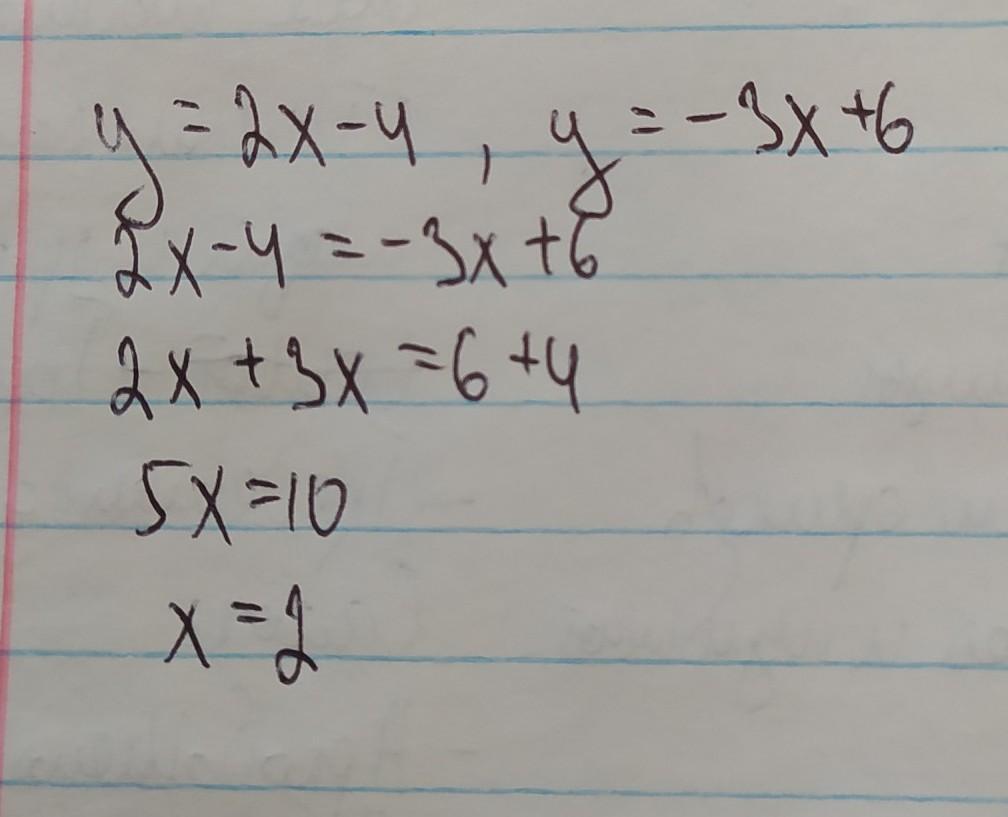 y = 2x - 4 , y = -3x + 6
2x - 4 = -3x + 6
2x + 3x = 6 + 4
5x = 10
x = 2